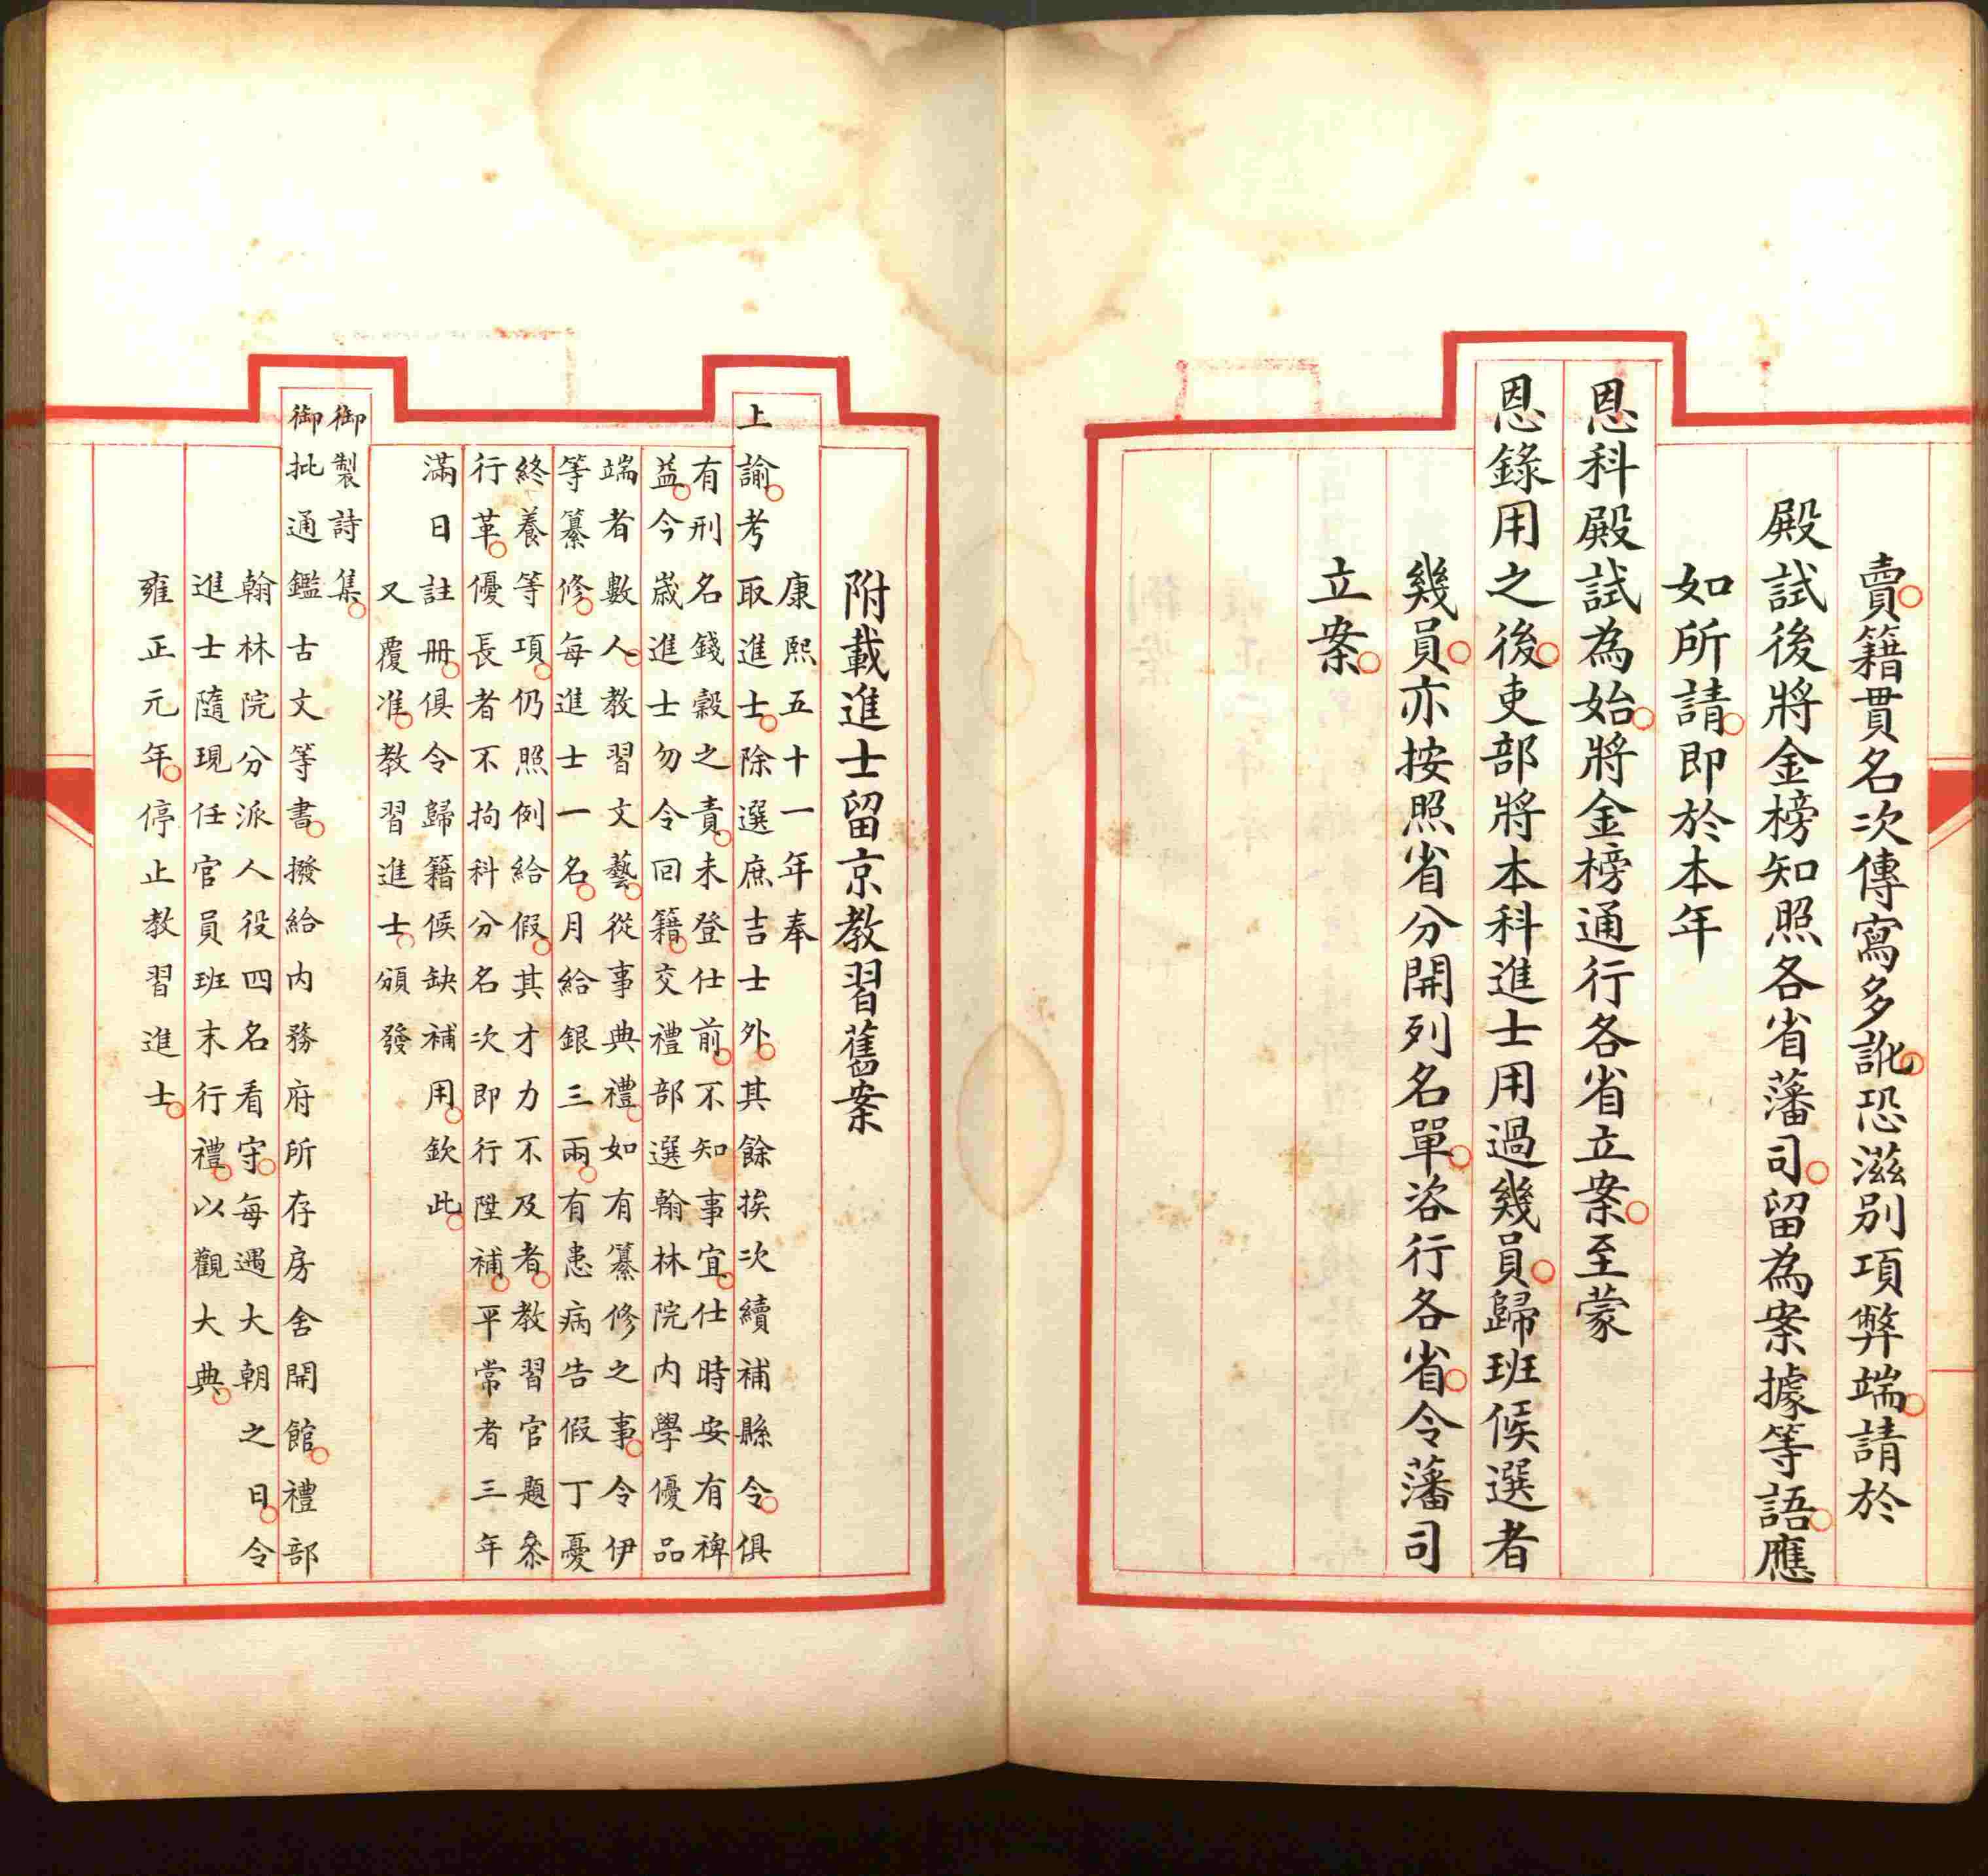 賣籍貫名次傳寫多訛恐滋别項弊端請於
殿試後將金榜知照各省藩司留為案據等語應
如所請即於本年
恩科殿試為始將金榜通行各省立案至蒙
恩錄用之後吏部將本科進士用過幾員歸班候選者
幾員亦按照省分開列名單咨行各省令藩司
立案
附載進士留京教習舊案
康熙五十一年奉
上諭考取進士除選庶吉士外其餘挨次續補縣令俱
有刑名錢穀之責未登仕前不知事宜仕時安有裨
益今歲進士勿令回籍交禮部選翰林院内學優品
端者數人教習文藝從事典禮如有纂修之事令伊
等纂修每進士一名月給銀三兩有患病告假丁憂
終養等項仍照例給假其才力不及者教習官題叅
行革優長者不拘科分名次即行陞補平常者三年
滿日註册俱令歸籍候缺補用欽此
又覆准教習進士頒發
御製詩集
御批通鑑古文等書撥給内務府所存房舍開館禮部
翰林院分派人役四名看守每遇大朝之日令
進士隨現任官員班末行禮以觀大典
雍正元年停止教習進士